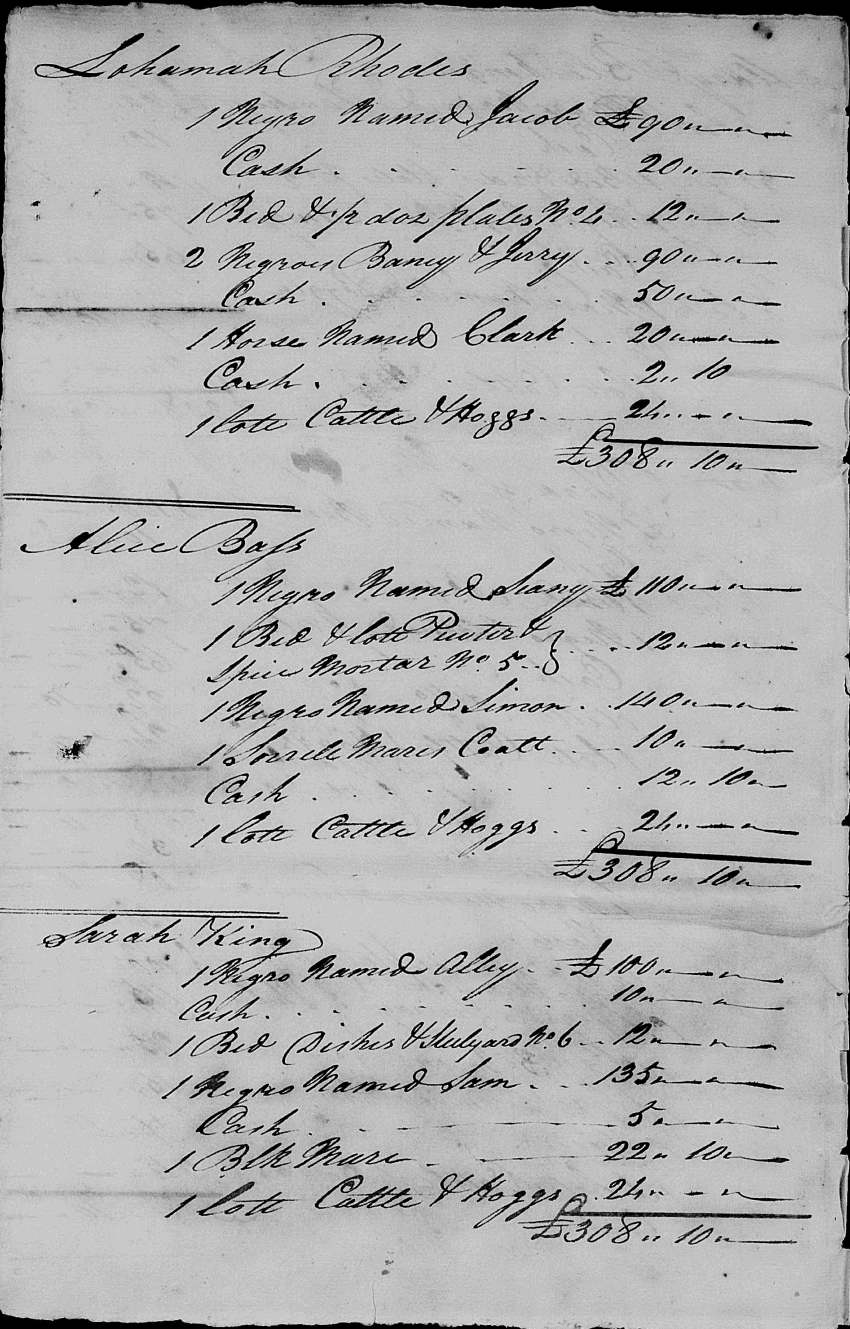 Lohamah Rhodes
1 Negro Named Jacob £90 " — " —
Cash . . . . . . . 20 " — " —
1 Bed & ½ doz plates No. 4 . . 12 " — " —
2 Negroes Baney & Jerry . . . 90 " — " —
Cash . . . . . . . 50 " — " —
1 Horse Named Clark . . . 20 " — " —
Cash . . . . . . . 2 " 10
1 lott Cattle & Hoggs . — 24 " — " —
£308 " 10 " —
Alice Bass
1 Negro Named Seany £ 110 " — " —
1 Bed & lott Pewter &
Spice Mortar No. 5 . . } . . . 12 " — " —
1 Negro Named Simon . . 140 " — " —
1 Sorrele Mares Coalt . . . . 10 " — " —
Cash . . . . . . . 12 " 10 " —
1 lott Cattle & Hoggs . . . 24 " — " —
£308 " 10 " —
Sarah King
1 Negro Named Alley . . £ 100 " — " —
Cash . . . . . . . 10 " — " —
1 Bed Dishes & Stilyard No. 6 . . 12 " — " —
1 Negro Named Sam . . . 135 " — " —
Cash . . . . . . . 5 " — " —
1 Blk Mare . — — 22 " 10 " —
1 lott Cattle & Hoggs . 24 " — " —
£308 " 10 " —